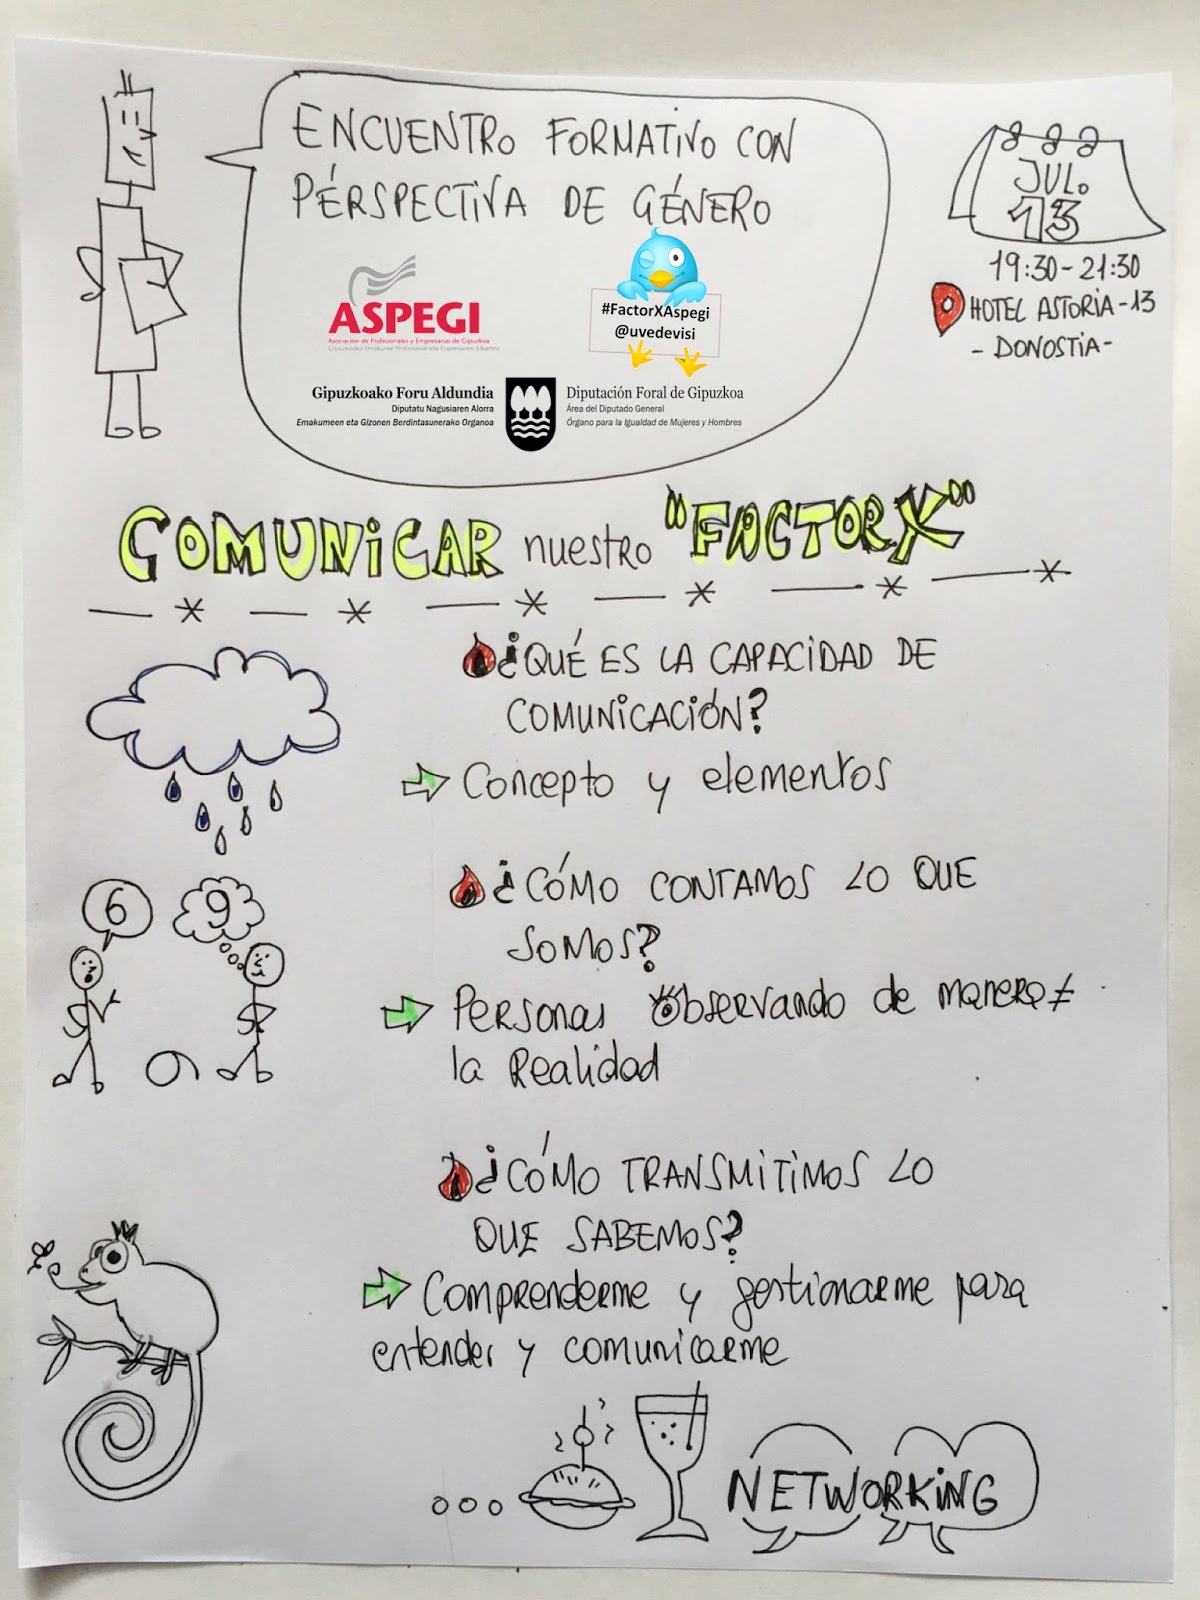 ENCUENTRO FORMATIVO CON
PÉRSPECTIVA DE GÉNERO
ASPEGI
Asociación de Profesionales y Empresarias de Gipuzkoa
Gipuzkoako Emakume Profesional eta Enpresarien Elkartea
#FactorXAspegi
@uvedevisi
Gipuzkoako Foru Aldundia
Diputatu Nagusiaren Alorra
Emakumeen eta Gizonen Berdintasunerako Organoa
Diputación Foral de Gipuzkoa
Área del Diputado General
Órgano para la Igualdad de Mujeres y Hombres
JUL.
13
19:30-21:30
HOTEL ASTORIA-13
- DONOSTIA-
COMUNICAR nuestro "FACTOR X"
¿QUÉ ES LA CAPACIDAD DE
COMUNICACIÓN?
Concepto y elementos
6
9
¿CÓMO CONTAMOS LO QUE
SOMOS?
Personas Observando de manera ≠
la Realidad
6
¿CÓMO TRANSMITIMOS LO
QUE SABEMOS?
Comprenderme y gestionarme para
entender y comunicarme
NETWORKING